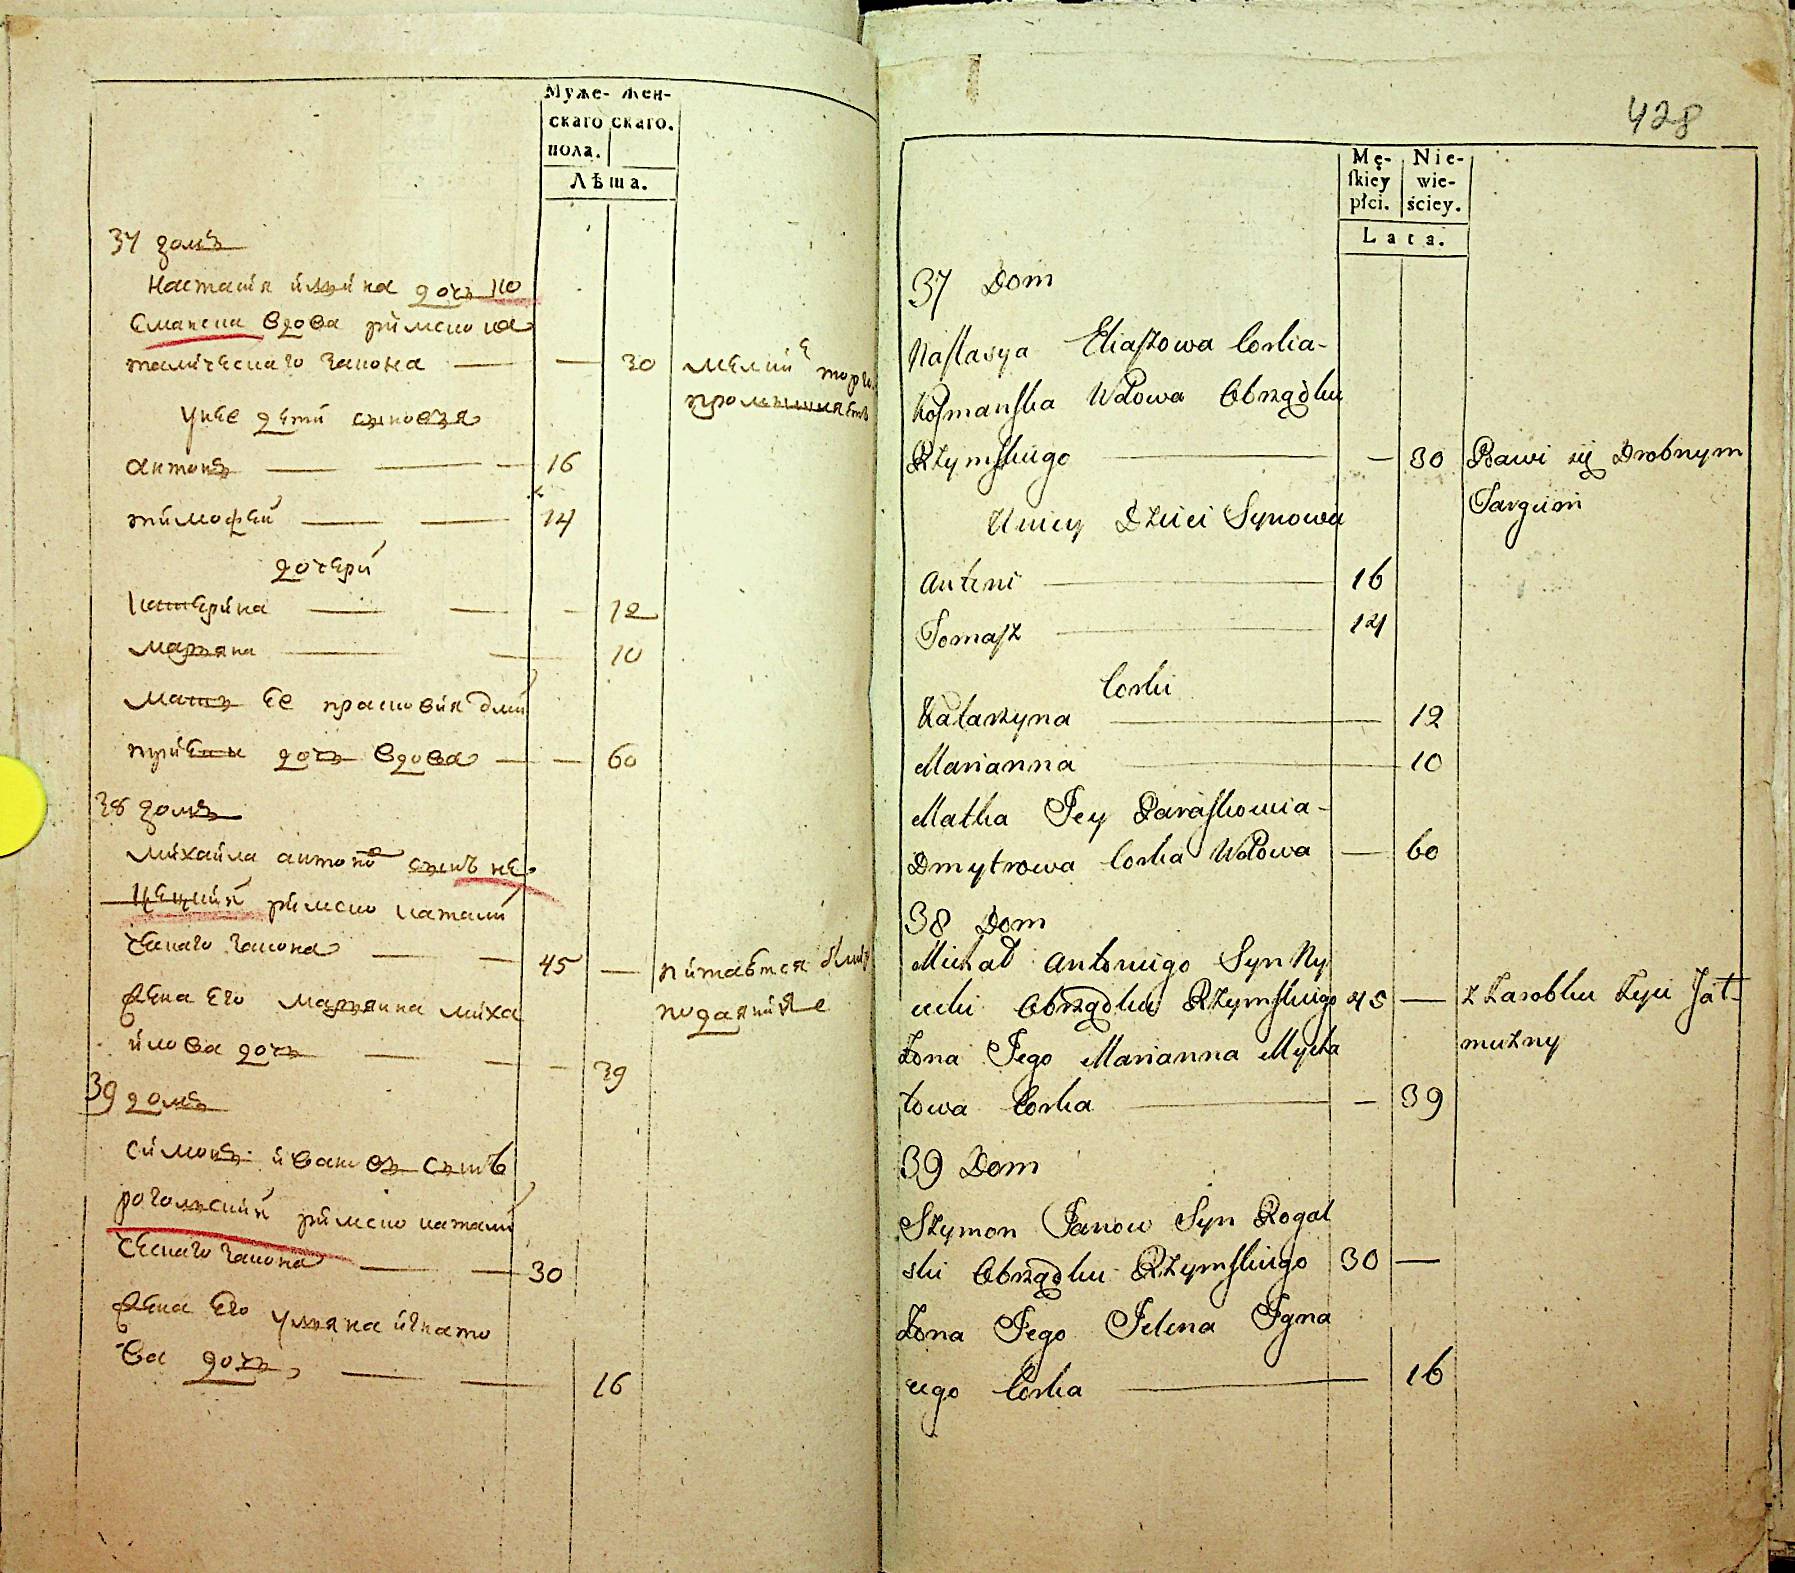 Муже- жен-
скаго скаго.
пола.
Лѣта.
37 домъ
Настасия илина дочъ ко
смаска вдова римско ка
толическаго закона — — 30 мелкие торги
промышляетъ
унее дети сыновя
антонъ — — — 16
тимофей — — 14
дочери
катерина — — — 12
маряна — — 10
мать ее прасковия дми
триева дочъ вдова — — 60
38 домъ
михайла антоновъ сынъ не
цецкий римско катали
ческаго закона — — 45 — питается
подания
жена его марянна миха
йлова дочъ — — — 39
39 домъ
симонъ ивановъ сынъ
рогольский римско катали
ческаго закона — — 30
жена его уляна игнато
ва дочъ, — — 16
428
Mę- Nie-
skiey wie-
płci. ściey.
Lata.
37 Dom
Nastasya Eliaszowa Corka
Kosmanska Wdowa Obrządku
Rzymskiego — — 30 Bawi się Drobnym
Targiem
Uniey Dzieci Synowie
Anteni — 16
Tomasz — 14
Corki
Katarzyna — 12
Marianna — 10
Matka Jey Paraskowia
Dmytrowa Corka Wdowa — 60
38 Dom
Michał Antoniego Syn Ny
cecki Obrządku Rzymskiego 45 — z Zarobku Zyie Jał
mużny
Zona Jego Marianna Mycha
łowa Corka — — 39
39 Dom
Szymon Janow Syn Rogal
ski Obrządku Rzymskiego 30 —
Zona Jego Jelena Igna
cego Corka — 16